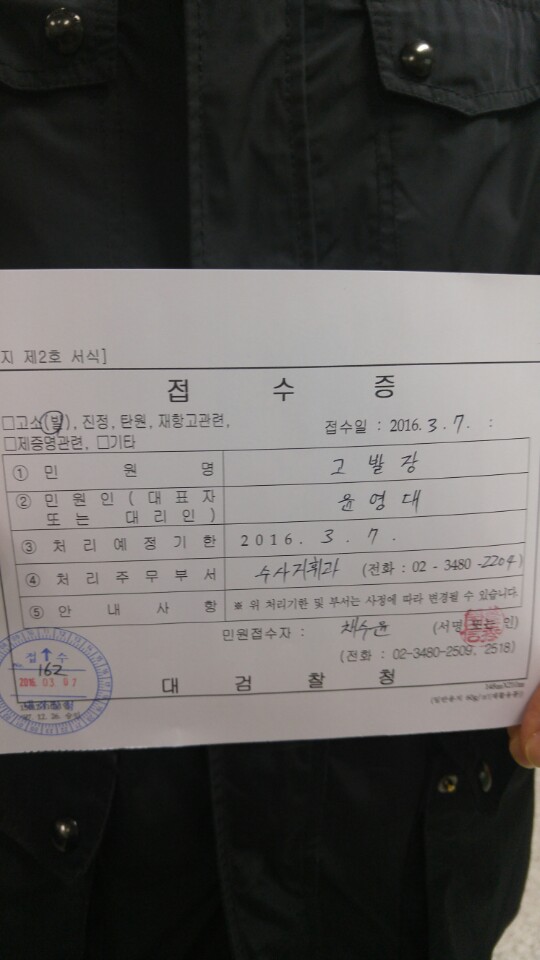 지 제2호 서식]
접 수 증
□고소(발), 진정, 탄원, 재항고관련,
접수일 : 2016. 3. 7. :
□제증명관련, □기타
① 민 원 명 고발장
② 민원인(대표자 또는 대리인) 윤영대
③ 처리예정기한 2016. 3. 7.
④ 처리주무부서 수사지휘과 (전화 : 02 - 3480 -2204)
⑤ 안 내 사 항 ※ 위 처리기한 및 부서는 사정에 따라 변경될 수 있습니다.
민원접수자 : 채수윤 (서명 또는 인)
(전화 : 02-3480-2509, 2518)
접 수
162
2016. 03. 07
대 검 찰 청
148㎜×210㎜